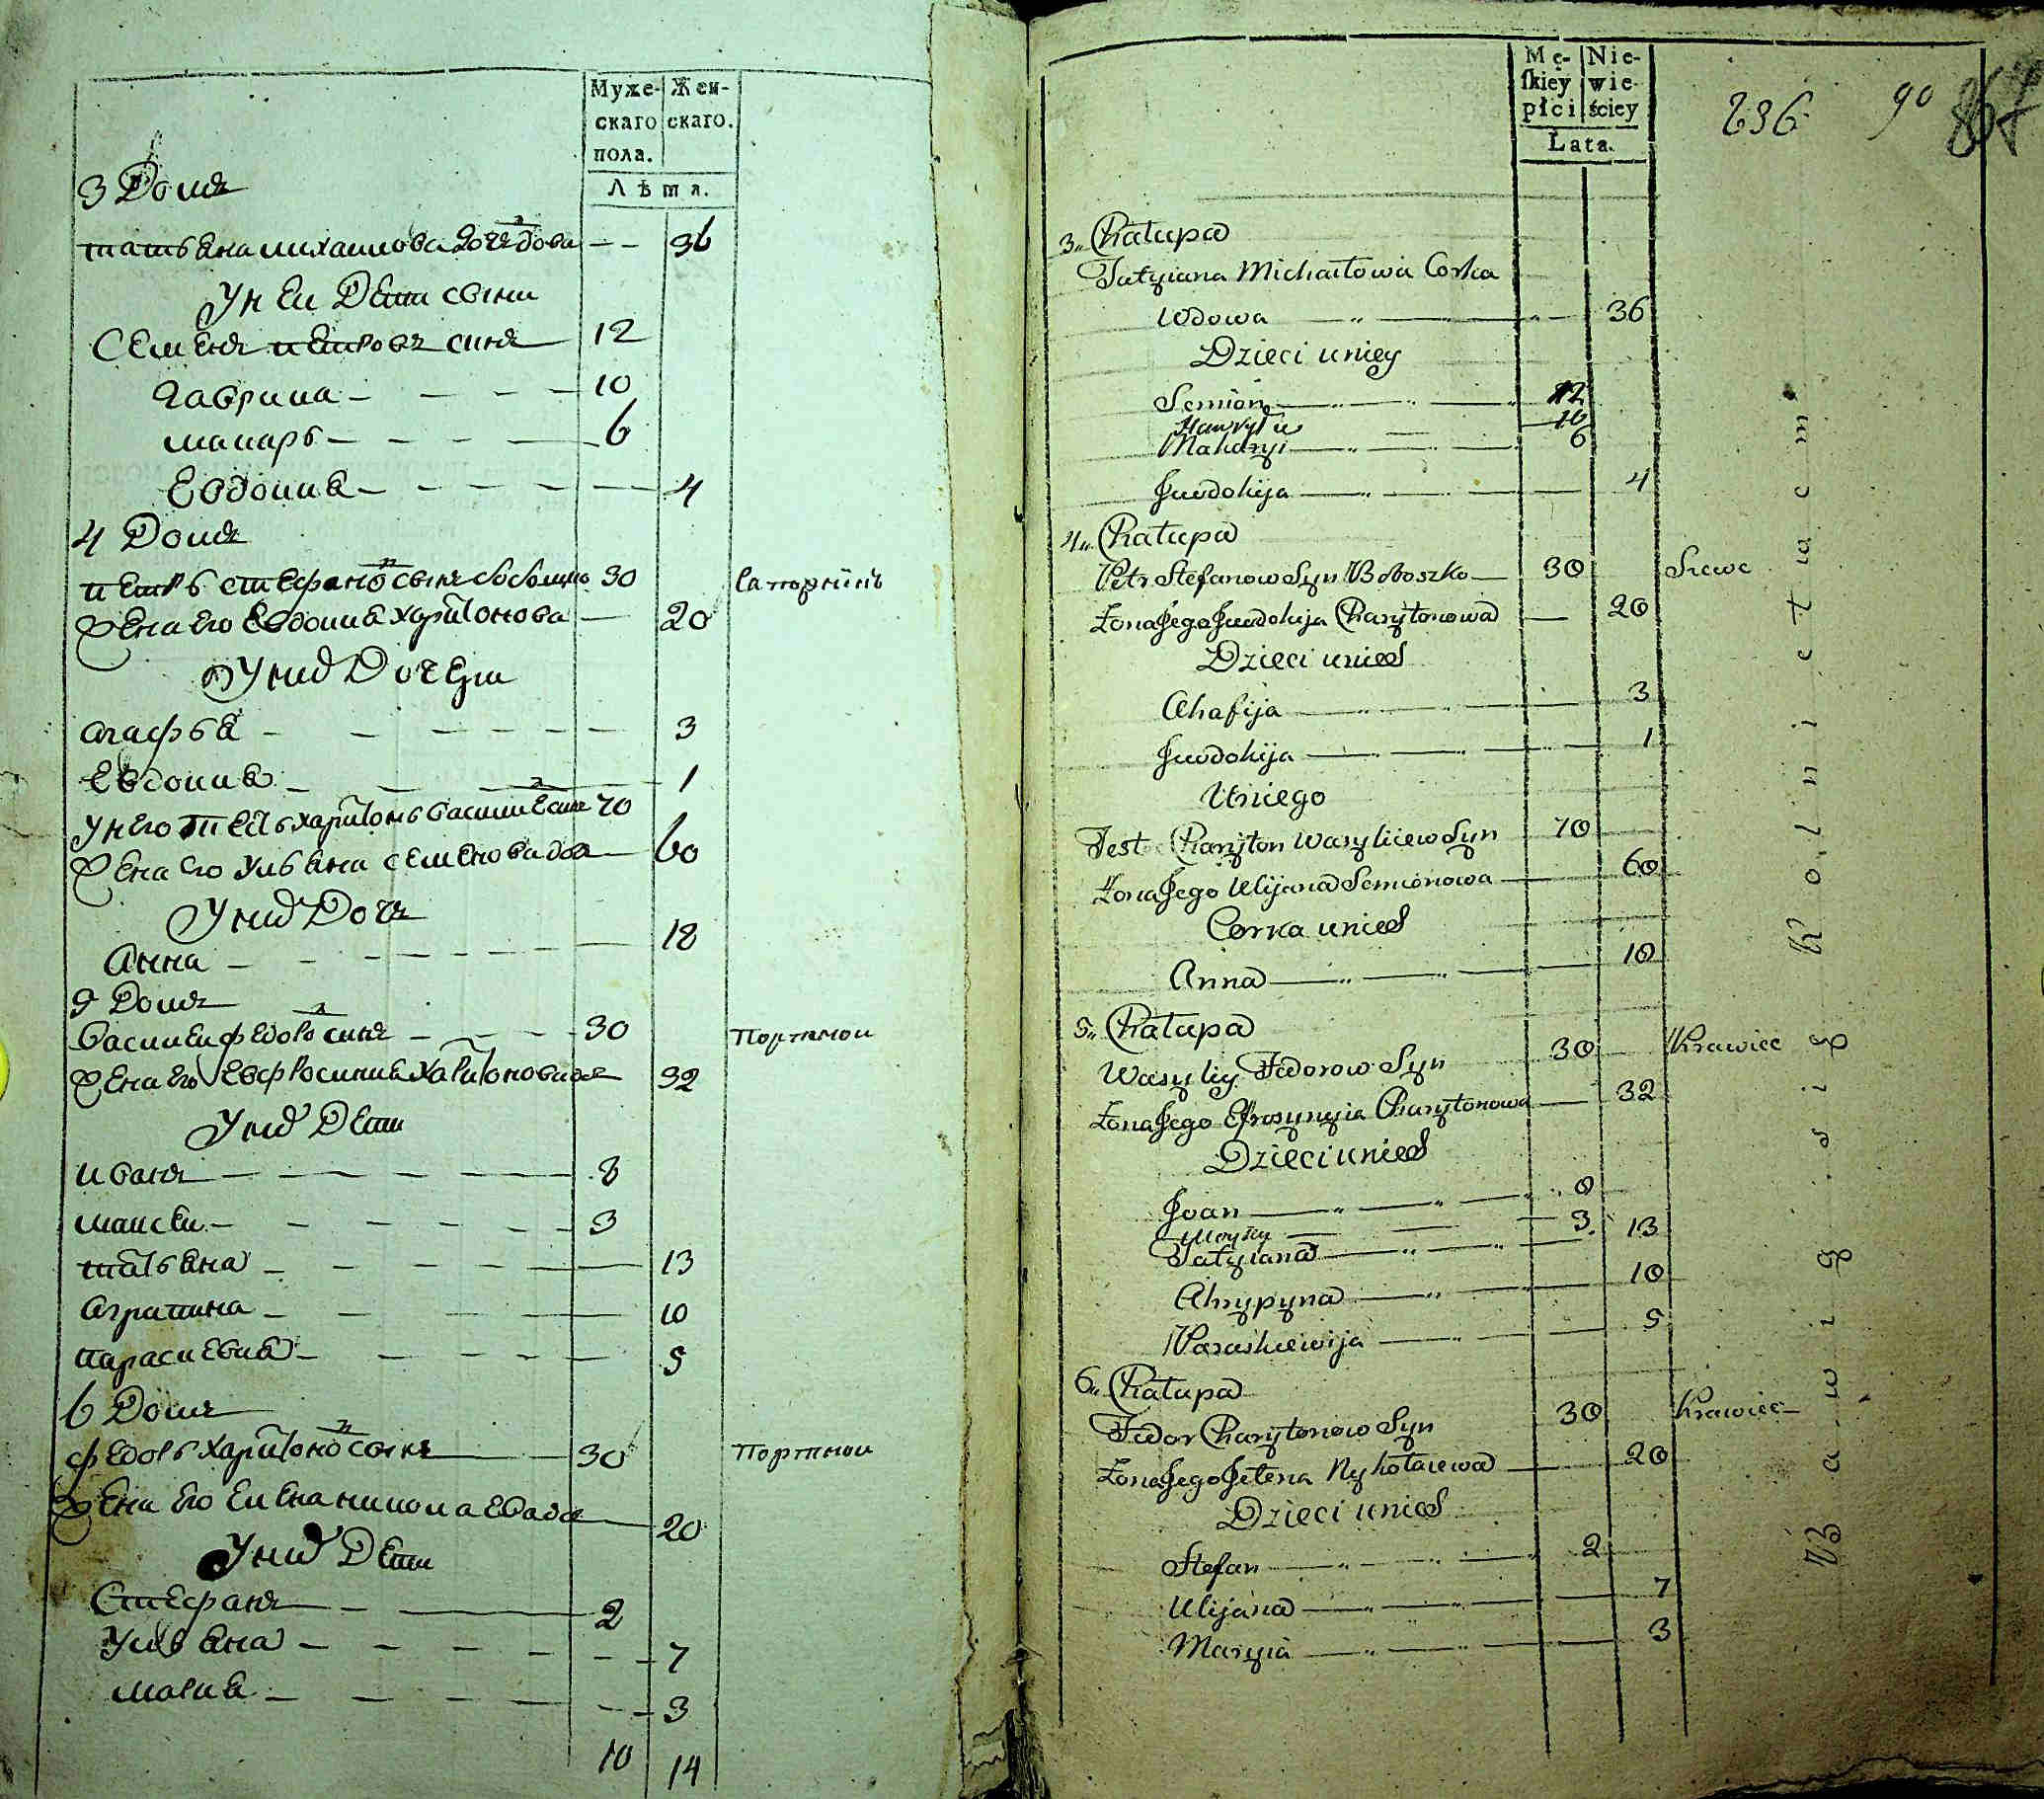 Муже-
скаго
пола.
Жен-
скаго.
Лѣта.
3 Домъ
татьяна михаилова дочь вдова — — 36
У неи Дети сыни
Семенъ петровъ синъ 12
гаврила — — — — 10
макаръ — — — — 6
Евдокия — — — — — 4
4 Домъ
петръ стефановъ сынъ 30
жена его Евдокия харитонова — 20
У нихъ Дочери
агафья — — — — — 3
Евдокия — — — 1
У него тесть харитонъ василиевъ синъ 70
жена его ульяна семенова до — 60
У нихъ Дочь
Анна — — — — — — 18
5 Домъ
василеи федоровъ синъ — — — 30 Портнои
жена его Евфросиния харитонова до 32
У нихъ Дети
иванъ — — — — — 8
моисеи — — — — — 3
татьяна — — — — — 13
агрипина — — — — 10
параскевия — — — — 5
6 Домъ
федоръ харитоновъ сынъ — 30 Портнои
жена его елена николаева до — 20
У нихъ Дети
Стефанъ — — 2
Ульяна — — — — — 7
мария — — — — — 3
10 14
Mę-
skiey
płci
Nie-
wie-
ściey
Lata.
236. 90
3„ Chałupa
Tatyiana Michaiłowa Corka
Wdowa — „ — „ — 36
Dzieci uniey
Semion — „ — 12
Hawryła — 10
Makaryi — „ — 6
Jewdokija — „ — 4
4„ Chałupa
Petr Stefanow Syn Boboszko — 30 Szewc
Żona Jego Jewdokija Charytonowa — 20
Dzieci unich
Ahafija — „ — 3
Jewdokija — „ — 1
Uniego
Test Charyton Wasyliiew Syn 70
Żona Jego Ulijana Semionowa — 60
Corka unich
Anna — „ — „ — 18
5„ Chałupa
Wasyliy Fedorow Syn 30 Krawiec
Żona Jego Efrosynyia Charytonowa — 32
Dzieci unich
Jwan — „ — „ — 8
Moysiy — — 3
Tatyiana — „ — „ — 13
Ahrypyna — „ — 10
Paraskiewija — „ — 5
6„ Chałupa
Fedor Charytonow Syn 30 Krawiec
Żona Jego Jelena Nykołaiewa — 20
Dzieci unich
Stefan — „ — „ — 2
Ulijana — „ — „ — 7
Maryia — „ — „ — 3